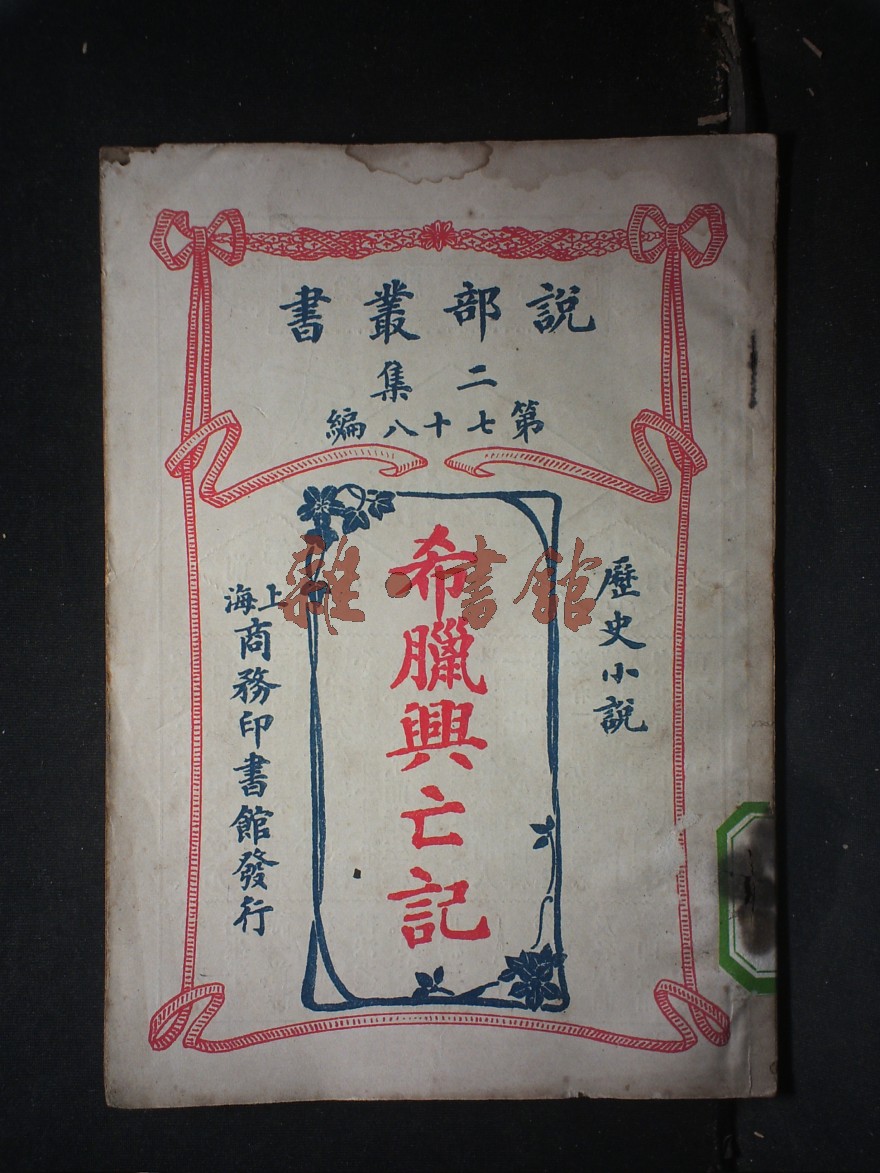 說部叢書
二集
第七十八編
歷史小說
希臘興亡記
上海商務印書館發行
雜·書館